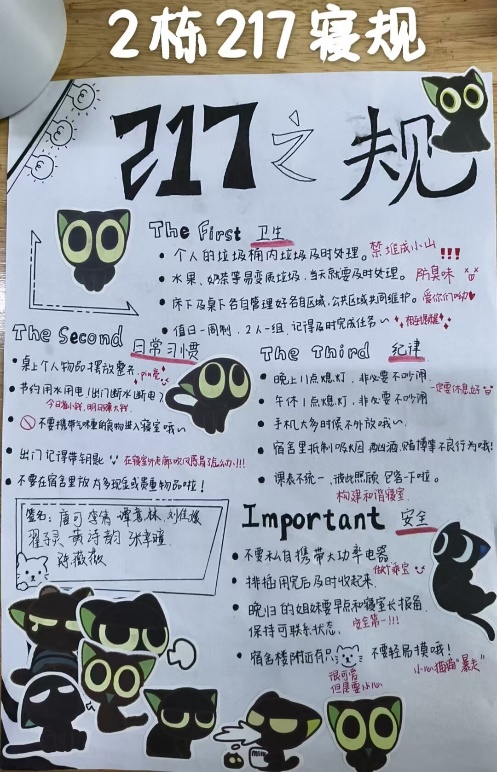 2栋217寝规
217之规
The First 卫生
个人的垃圾桶内垃圾及时处理。禁堆成小山!!!
水果、奶茶等易变质垃圾,当天就要及时处理。防臭味
床下及桌下各自管理好各自区域,公共区域共同维护。爱你们呦
值日一周制,2人一组,记得及时完成任务~
The Second 日常习惯
桌上个人物品摆放整齐
节约用水用电!出门断水断电
今日省小钱,明日赚大钱
不要携带气味重的食物进入寝室哦~
出门记得带钥匙
不要在宿舍里放太多现金或贵重物品啦!
The Third 纪律
晚上11点熄灯,非必要不吵闹
一定要休息好
午休1点熄灯,非必要不吵闹
手机大多时候不外放哦~
宿舍里抵制吸烟、酗酒、赌博等不良行为哦!
课表不统一,彼此照顾包容一下啦。
构建和谐寝室
签名:
Important 安全
不要私自携带大功率电器
做个乖宝
排插用完后及时收起来
晚归的姐妹要早点和寝室长报备
保持可联系状态。安全第一!!!
宿舍楼附近有只 不要轻易摸哦!
很可爱
但是要小心
小心猫猫"暴走"